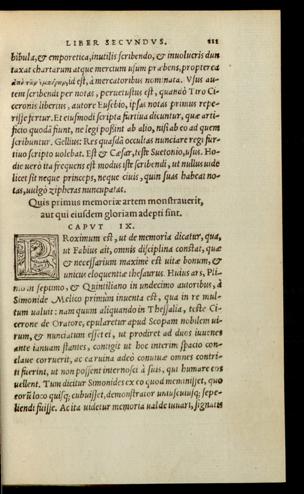 LIBER SECVNDVS. 111
bibula, & emporetica, inutilis scribendo, & inuolucris dun
taxat chartarum atque mercium usum præbens, propterea
id est, à mercatoribus nominata. Vsus au-
tem scribendi per notas, peruetustus est, quando Tiro Ci-
ceronis libertus, autore Eusebio, ipsas notas primus repe-
risse fertur. Et eiusmodi scripta furtiua dicuntur, quæ arti-
ficio quodā fiunt, ne legi possint ab alio, nisi ab eo ad quem
scribuntur. Gellius: Res quasdā occultas nunciare regi fur-
tiuo scripto uolebat. Est & Cæsar, teste Suetonio, usus. Ho-
die uero ita frequens est modus iste scribendi, ut nullus uide
licet sit neque princeps, neque ciuis, quin suas habeat no-
tas, uulgò zipheras nuncupatas.
Quis primus memoriæ artem monstrauerit,
aut qui eiusdem gloriam adepti sint.
CAPVT IX.
PRoximum est, ut de memoria dicatur, qua,
ut Fabius ait, omnis disciplina constat, quæ
& necessarium maximè est uitæ bonum, &
unicus eloquentiæ thesaurus. Huius ars, Pli-
nio in septimo, & Quintiliano in undecimo autoribus, à
Simonide Melico primùm inuenta est, qua in re mul-
tum ualuit: nam quum aliquando in Thessalia, teste Ci-
cerone de Oratore, epularetur apud Scopam nobilem ui-
rum, & nunciatum esset ei, ut prodiret ad duos iuuenes
ante ianuam stantes, contigit ut hoc interim spacio con-
claue corruerit, ac ruina adeò conuiuæ omnes contri-
ti fuerint, ut non possent internosci à suis, qui humare eos
uellent. Tum dicitur Simonides ex eo quod meminisset, quo
eorū loco quisq; cubuisset, demonstrator uniuscuiusq; sepe-
liendi fuisse. Ac ita uidetur memoria ualde iuuari, signatis